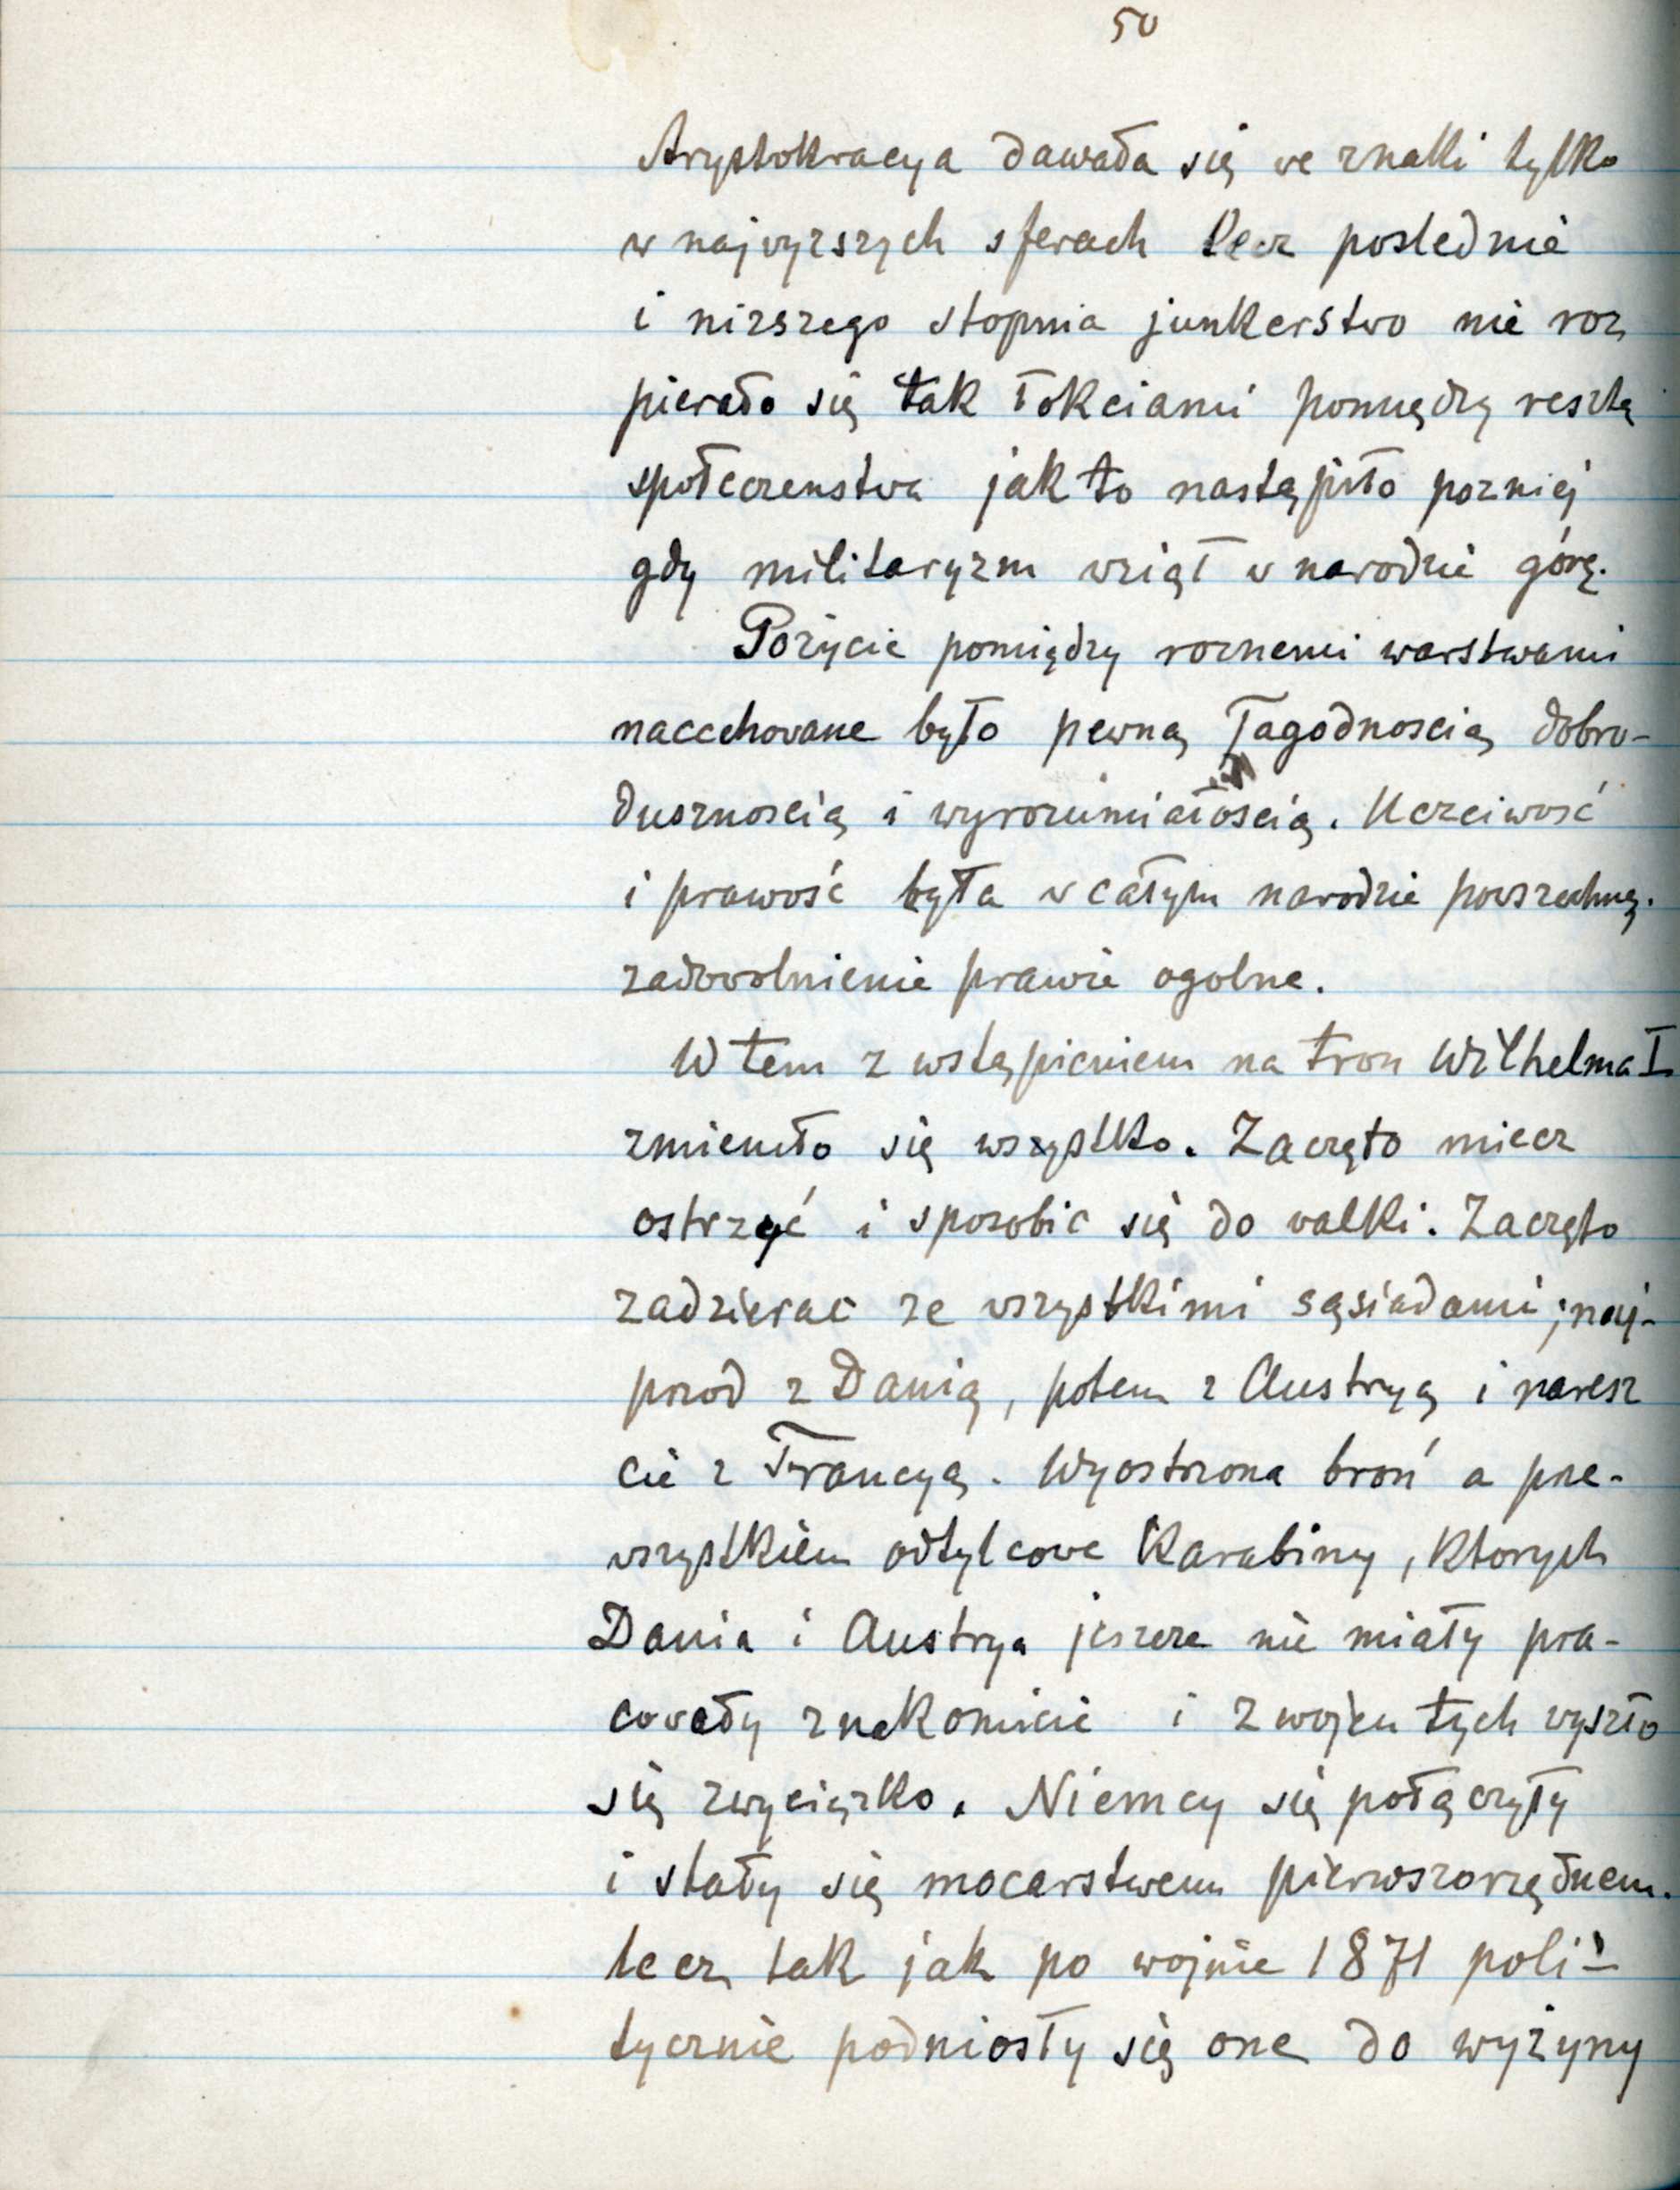 50
Arystokracya dawała się we znaki tylko
w najwyzszych sferach lecz poslednie
i nizszego stopnia junkerstwo nie roz
pierało się tak łokciami pomiędzy resztą
społeczenstwa jak to nastąpiło pozniej
gdy militaryzm wziął w narodzie górę.
Pożycie pomiędzy roznemi warstwami
nacechowane było pewną łagodnoscią dobro-
dusznoscią i wyrozumiałoscią. Uczciwość
i prawość była w całym narodzie powszechną.
zadowolnienie prawie ogolne.
W tem z wstąpieniem na tron Wilhelma I
zmieniło się wszystko. Zaczęto miecz
ostrzyć i sposobic się do walki. Zaczęto
zadzierac ze wszystkimi sąsiadami; naj-
przod z Danią, potem z Austryą i naresz
cie z Francyą. Wyostrzona broń a prze-
wszystkiem odtylcowe karabiny, ktorych
Dania i Austrya jeszcze nie miały pra-
cowały znakomicie i z wojen tych wyszło
się zwycięzko. Niemcy się połączyły
i stały się mocarstwem pierwszorzędnem.
lecz tak jak po wojnie 1871 poli-
tycznie podniosły się one do wyżyny